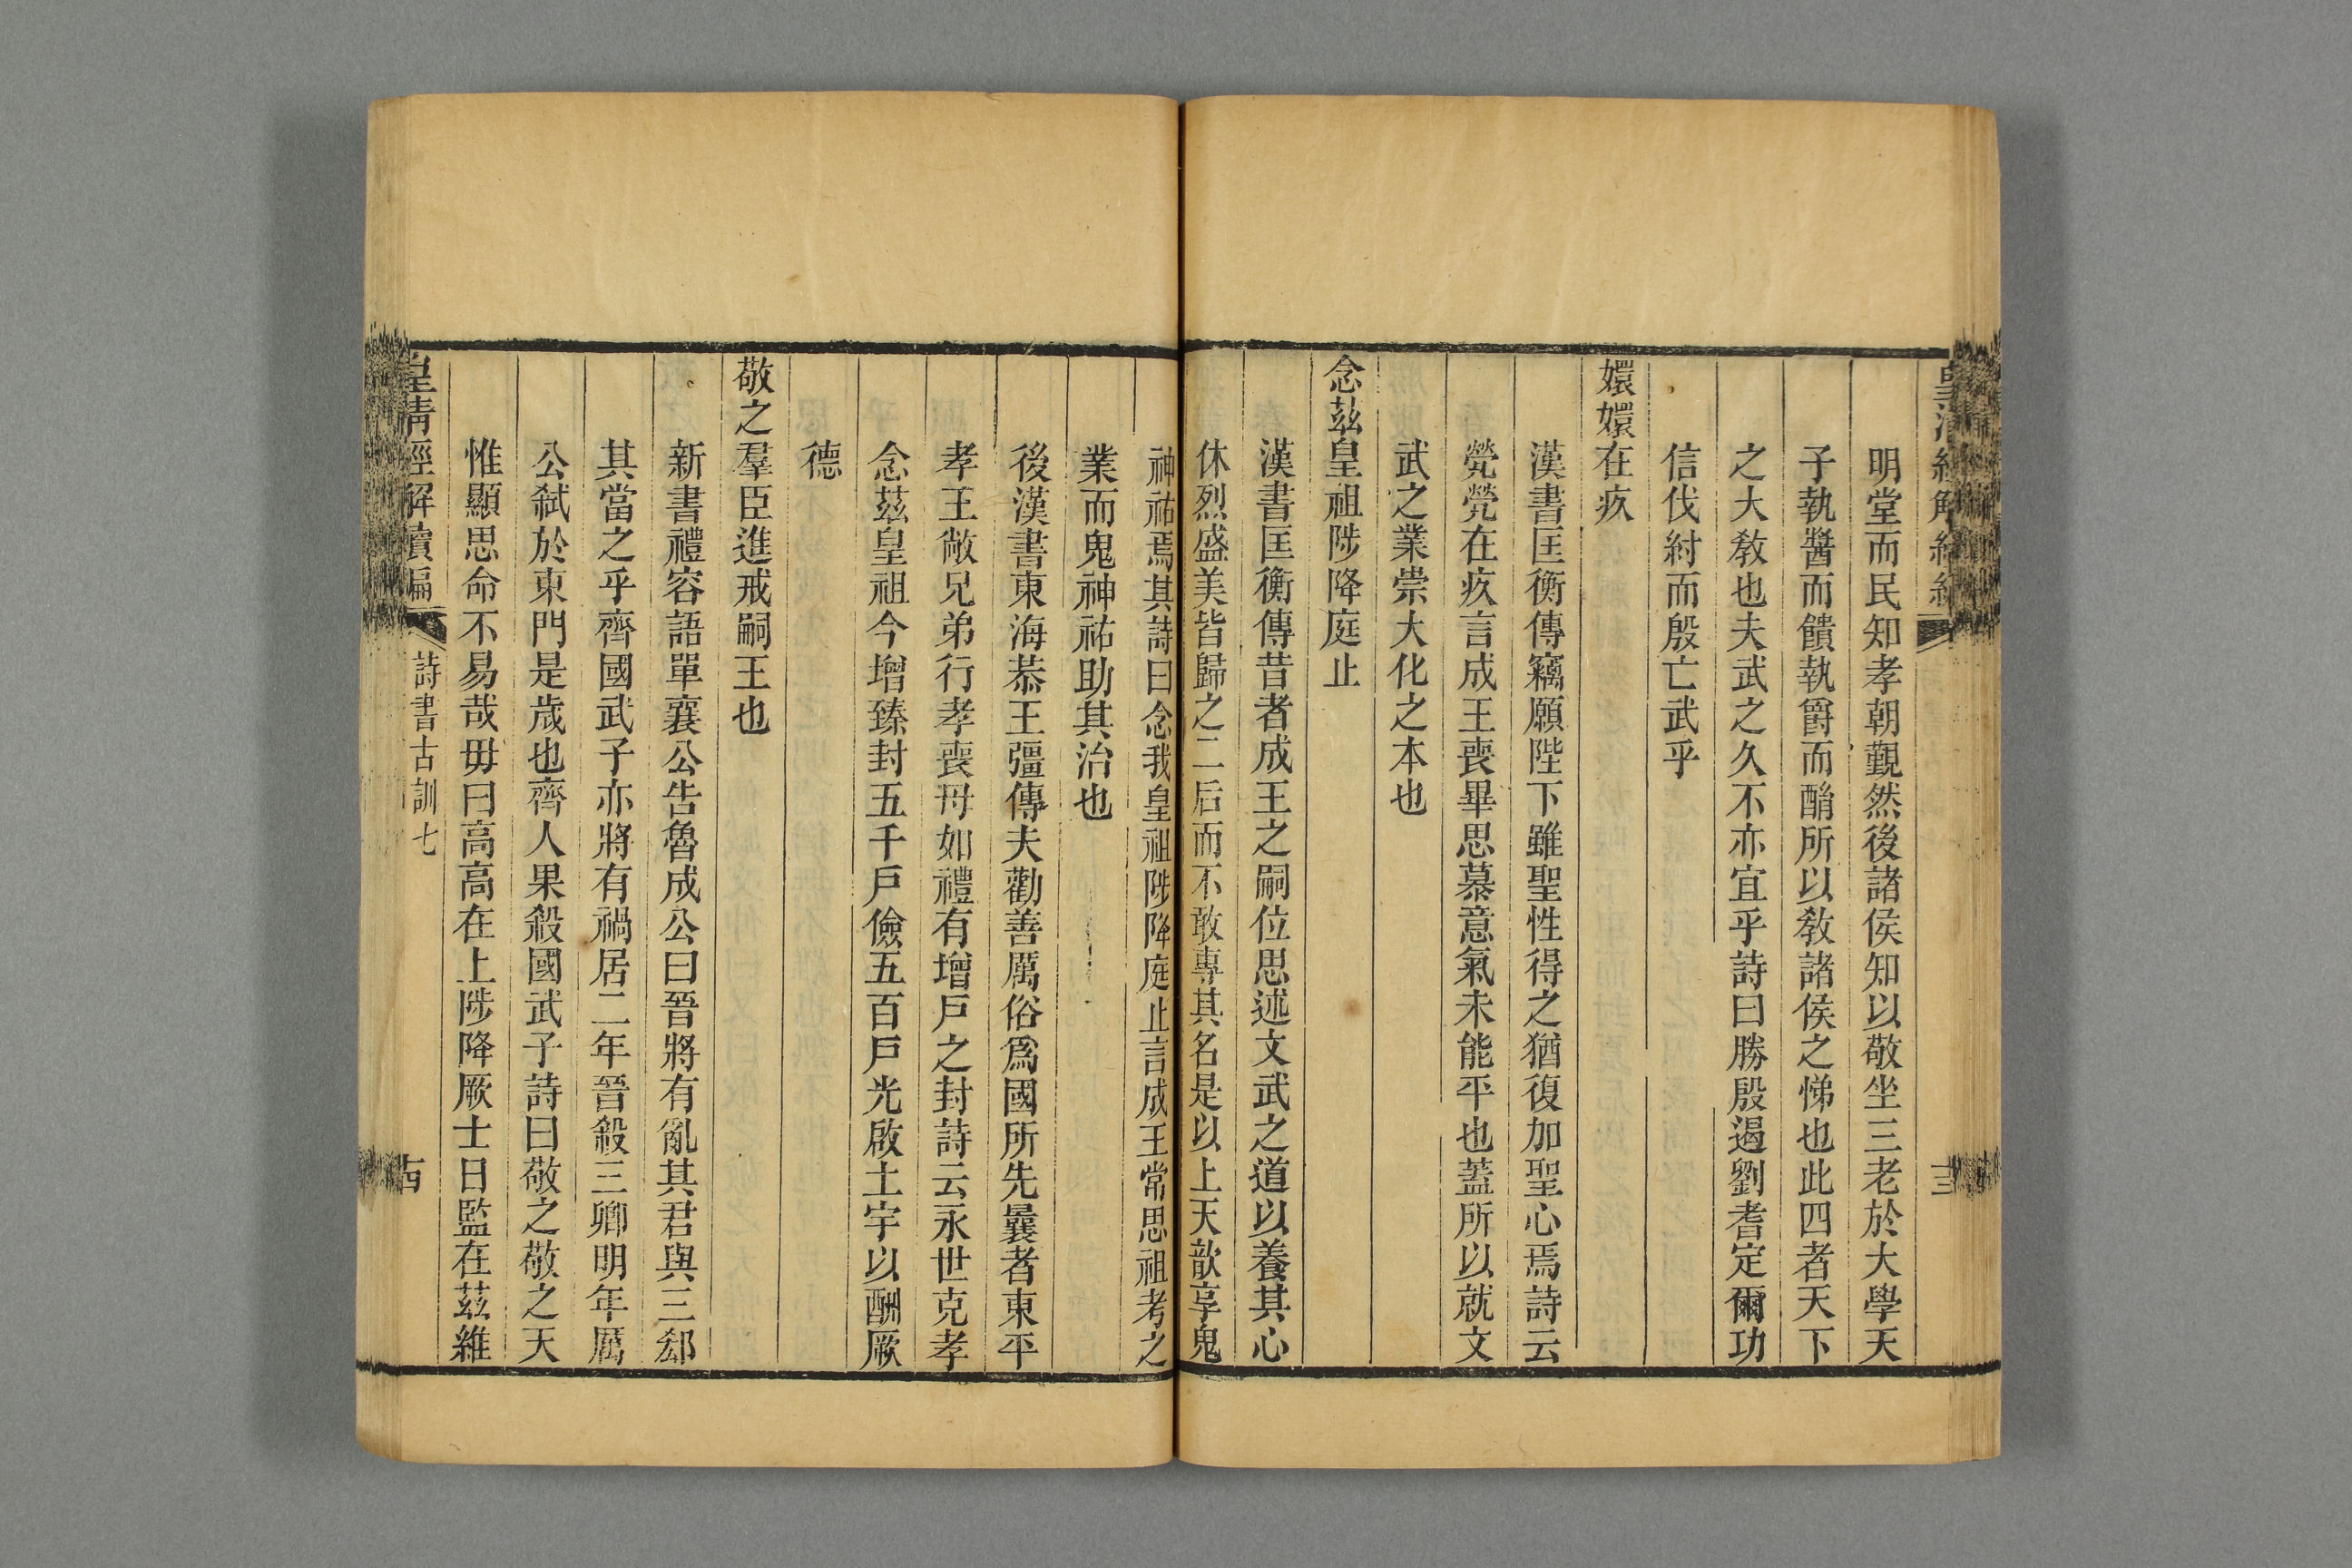 明堂而民知孝朝覲然後諸侯知以敬坐三老於大學天
子執醬而饋執爵而酳所以敎諸侯之悌也此四者天下
之大敎也夫武之久不亦宜乎詩曰勝殷遏劉耆定爾功
信伐紂而殷亡武乎
嬛嬛在疚
漢書匡衡傳竊願陛下雖聖性得之猶復加聖心焉詩云
煢煢在疚言成王喪畢思慕意氣未能平也蓋所以就文
武之業崇大化之本也
念茲皇祖陟降庭止
漢書匡衡傳昔者成王之嗣位思述文武之道以養其心
休烈盛美皆歸之二后而不敢專其名是以上天歆享鬼
神祐焉其詩曰念我皇祖陟降庭止言成王常思祖考之
業而鬼神祐助其治也
後漢書東海恭王彊傳夫勸善厲俗爲國所先曩者東平
孝王敞兄弟行孝喪母如禮有增戸之封詩云永世克孝
念茲皇祖今增臻封五千戸儉五百戸光啟土宇以酬厥
德
敬之羣臣進戒嗣王也
新書禮容語單襄公告魯成公曰晉將有亂其君與三郄
其當之乎齊國武子亦將有禍居二年晉殺三卿明年厲
公弑於東門是歲也齊人果殺國武子詩曰敬之敬之天
惟顯思命不易哉毋曰高高在上陟降厥士日監在茲維
皇清經解續編 詩書古訓七